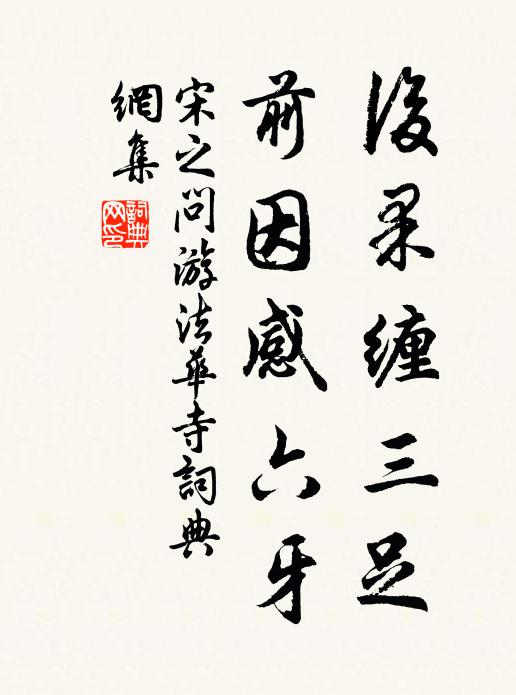 後果纏三足
前因感六牙
宋之問游法華寺詞典
網集
詞典
网印